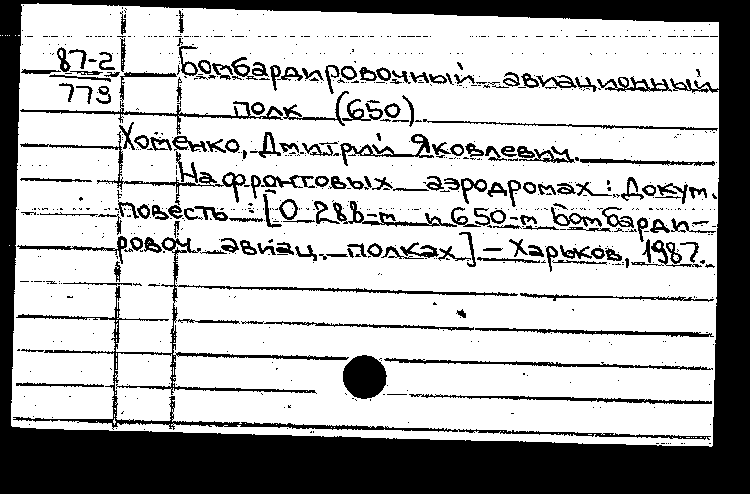 87-2
773
Бомбардировочный авиационный
полк (650).
Хоменко, Дмитрий Яковлевич.
На фронтовых аэродромах: Докум.
повесть: [О 288-м и 650-м бомбарди-
ровоч. авиац. полках] – Харьков, 1987.